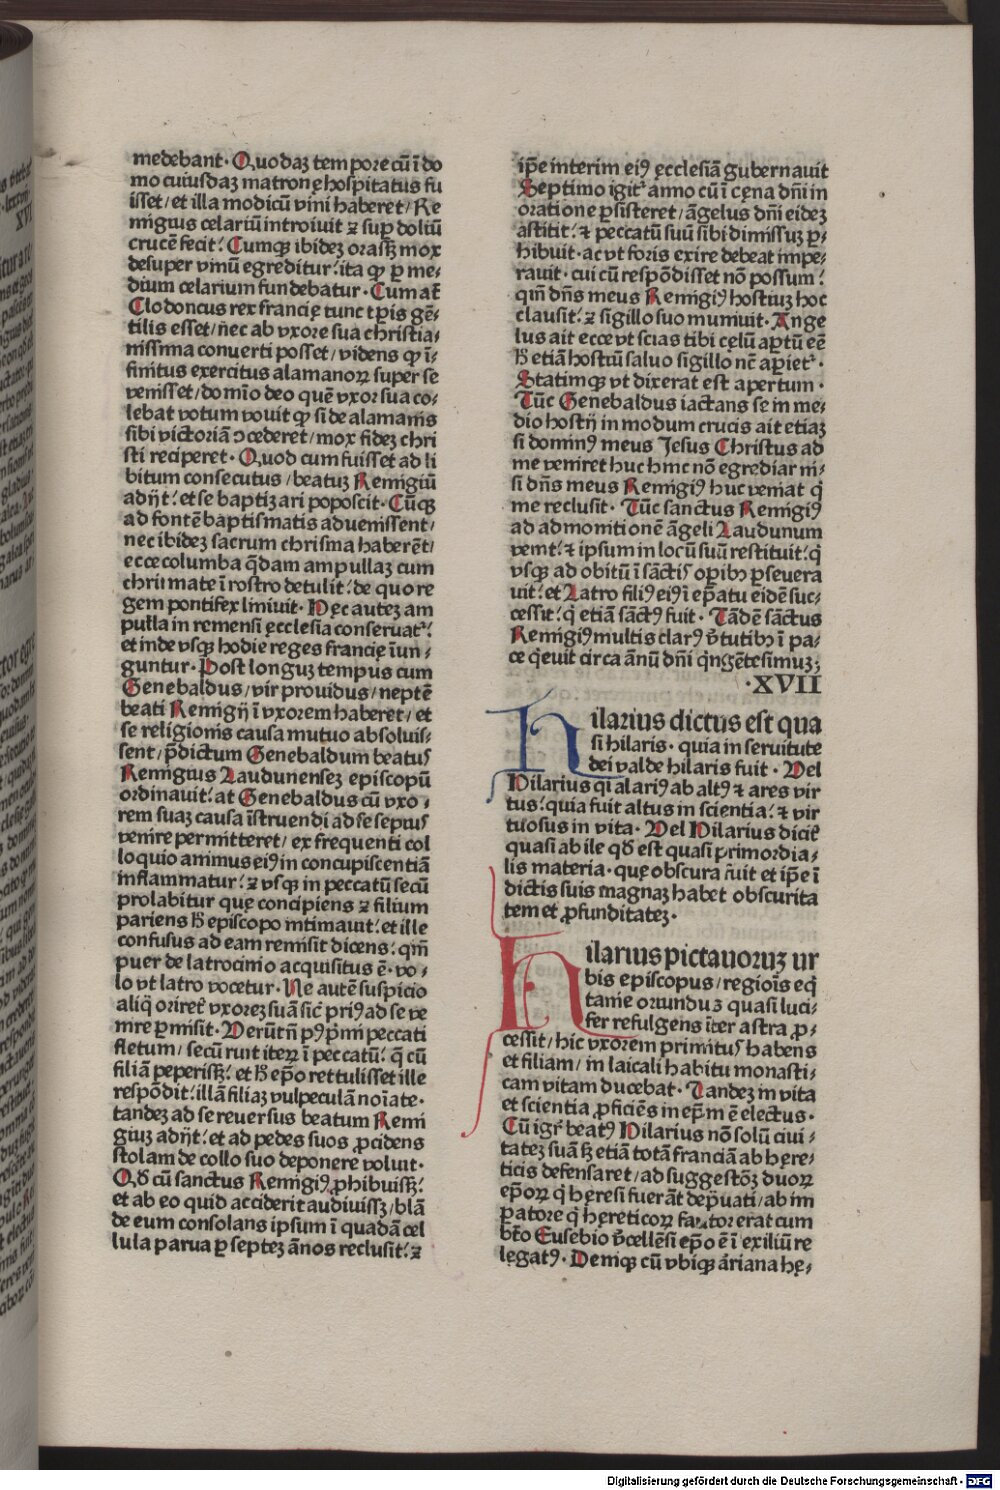 medebant· Quodaz tempore cū ī do
mo cuiusdaꝫ matronę hospitatus fu
isset/ et illa modicū vini haberet/ Re
migius celariū introiuit ⁊ suꝑ doliū
crucē fecit: Cumqꝫ ibideꝫ orasꝫ mox
desuper vinū egreditur: ita ꝙ ꝑ me⸗
dium celarium fundebatur· Cum at̄
Clodoneus rex francię tunc tꝑis gē⸗
tilis esset/ nec ab vxore sua christia⸗
nissima conuerti posset/ videns ꝙ ī⸗
finitus exercitus alamanoꝝ super se
venisset/ domīo deo quē vxor sua co⸗
lebat votum vouit ꝙ si de alamanis
sibi victoriā ꝯcederet/ mox fideꝫ chri
sti reciperet· Quod cum fuisset ad li
bitum consecutus/ beatuꝫ Remigiū
adijt: et se baptizari poposcit· Cūqꝫ
ad fontē baptismatis aduenissent/
nec ibideꝫ sacrum chrisma haberēt/
ecce columba q̄dam ampullaꝫ cum
chrismate ī rostro detulit: de quo re
gem pontifex liniuit· Hęc auteꝫ am
pulla in remensi ęcclesia conseruat᷑:
et inde vsqꝫ hodie reges francię iun⸗
guntur· Post longuꝫ tempus cum
Genebaldus/ vir prouidus/ neptē
beati Remigij ī vxorem haberet/ et
se religionis causa mutuo absoluis⸗
sent/ p̄dictum Genebaldum beatus
Remigius Laudunenseꝫ episcopū
ordinauit: at Genebaldus cū vxo⸗
rem suaꝫ causa īstruendi ad se sepius
venire permitteret/ ex frequenti col
loquio animus eiꝰ in concupiscentiā
inflammatur: ⁊ vsqꝫ in peccatū secū
prolabitur que concipiens ⁊ filium
pariens h̄ episcopo intimauit: et ille
confusus ad eam remisit dicens· qm̄
puer de latrocinio acquisitus ē· vo⸗
lo vt latro vocetur· Ne autē suspicio
aliq̄ oriret᷑ vxoreꝫ suā sic̄ priꝰ ad se ve
nire ꝑmisit· Verūtn̄ pꝰ pͥmi peccati
fletum/ secū ruit iteꝝ ī peccatū: q̄ cū
filiā peperisꝫ: et h̄ ep̄o rettulisset ille
respōdit: illā filiaꝫ vulpeculā noīate·
tandeꝫ ad se reuersus beatum Remi
giuꝫ adijt: et ad pedes suos ꝓcidens
stolam de collo suo deponere voluit·
Qd̄ cū sanctus Remigiꝰ ꝓhibuisꝫ:
et ab eo quid acciderit audiuissꝫ/ blā
de eum consolans ipsum ī quadā cel
lula parua ꝑ septeꝫ ānos reclusit: ⁊
ip̄e interim eiꝰ ęcclesiā gubernauit
Septimo igit᷑ anno cū ī cęna dn̄i in
oratione ꝑsisteret/ āgelus dn̄i eideꝫ
astitit: ⁊ peccatū suū sibi dimissuꝫ ꝑ⸗
hibuit· ac vt foris exire debeat impe⸗
rauit· cui cū respōdisset nō possum:
qm̄ dn̄s meus Remigiꝰ hostiuꝫ hoc
clausit: ⁊ sigillo suo muniuit· Ange
lus ait ecce vt scias tibi cęlū aꝑtū eē
h̄ etiā hostiū saluo sigillo nc̄ aꝑiet᷑·
Statimqꝫ vt dixerat est apertum·
Tūc Genebaldus iactans se in me⸗
dio hostij in modum crucis ait etiaꝫ
si dominꝰ meus Jesus Christus ad
me veniret huc hinc nō egrediar ni⸗
si dn̄s meus Remigiꝰ huc veniat q̇
me reclusit· Tūc sanctus Remigiꝰ
ad admonitionē āgeli Laudunum
venit: ⁊ ipsum in locū suū restituit: q̇
vsqꝫ ad obitū ī sāctis oꝑibꝫ ꝑseuera
uit: et Latro filiꝰ eiꝰ ī ep̄atu eidē suc⸗
cessit: q̇ etiā sāctꝰ fuit· Tādē sāctus
Remigiꝰ multis clarꝰ v̄tutibꝫ ī pa⸗
ce q̇euit circa ānū dn̄i q̇ngētesimuꝫ;
·XVII
Hilarius dictus est qua
si hilaris· quia in seruitute
dei valde hilaris fuit· Vel
Hilarius q̄i alariꝰ ab altꝰ ⁊ ares vir
tus: quia fuit altus in scientia: ⁊ vir
tuosus in vita· Vel Hilarius dicit᷑
quasi ab ile qd̄ est quasi primordia⸗
lis materia· que obscura fuit et ip̄e ī
dictis suis magnaꝫ habet obscurita
tem et ꝓfunditateꝫ·
Hilarius pictauoruꝫ ur
bis episcopus/ regiōis eq̇
tanie oriundus quasi luci⸗
fer refulgens īter astra ꝓ⸗
cessit/ hic vxorem primitus habens
et filiam/ in laicali habitu monasti⸗
cam vitam ducebat· Tandeꝫ in vita
et scientia ꝓficiēs in ep̄m ē electus·
Cū igr̄ beatꝰ Hilarius nō solū ciui⸗
tateꝫ suā sꝫ etiā totā franciā ab hęre⸗
ticis defensaret/ ad suggestōꝫ duoꝝ
ep̄oꝝ q̇ hęresi fuerāt dep̄uati/ ab im
ꝑatore q̇ hęreticoꝝ fautor erat cum
bt̄o Eusebio v̄cellēsi ep̄o ē ī exiliū re
legatꝰ· Deniqꝫ cū vbiqꝫ arriana hę⸗
Digitalisierung gefördert durch die Deutsche Forschungsgemeinschaft - DFG